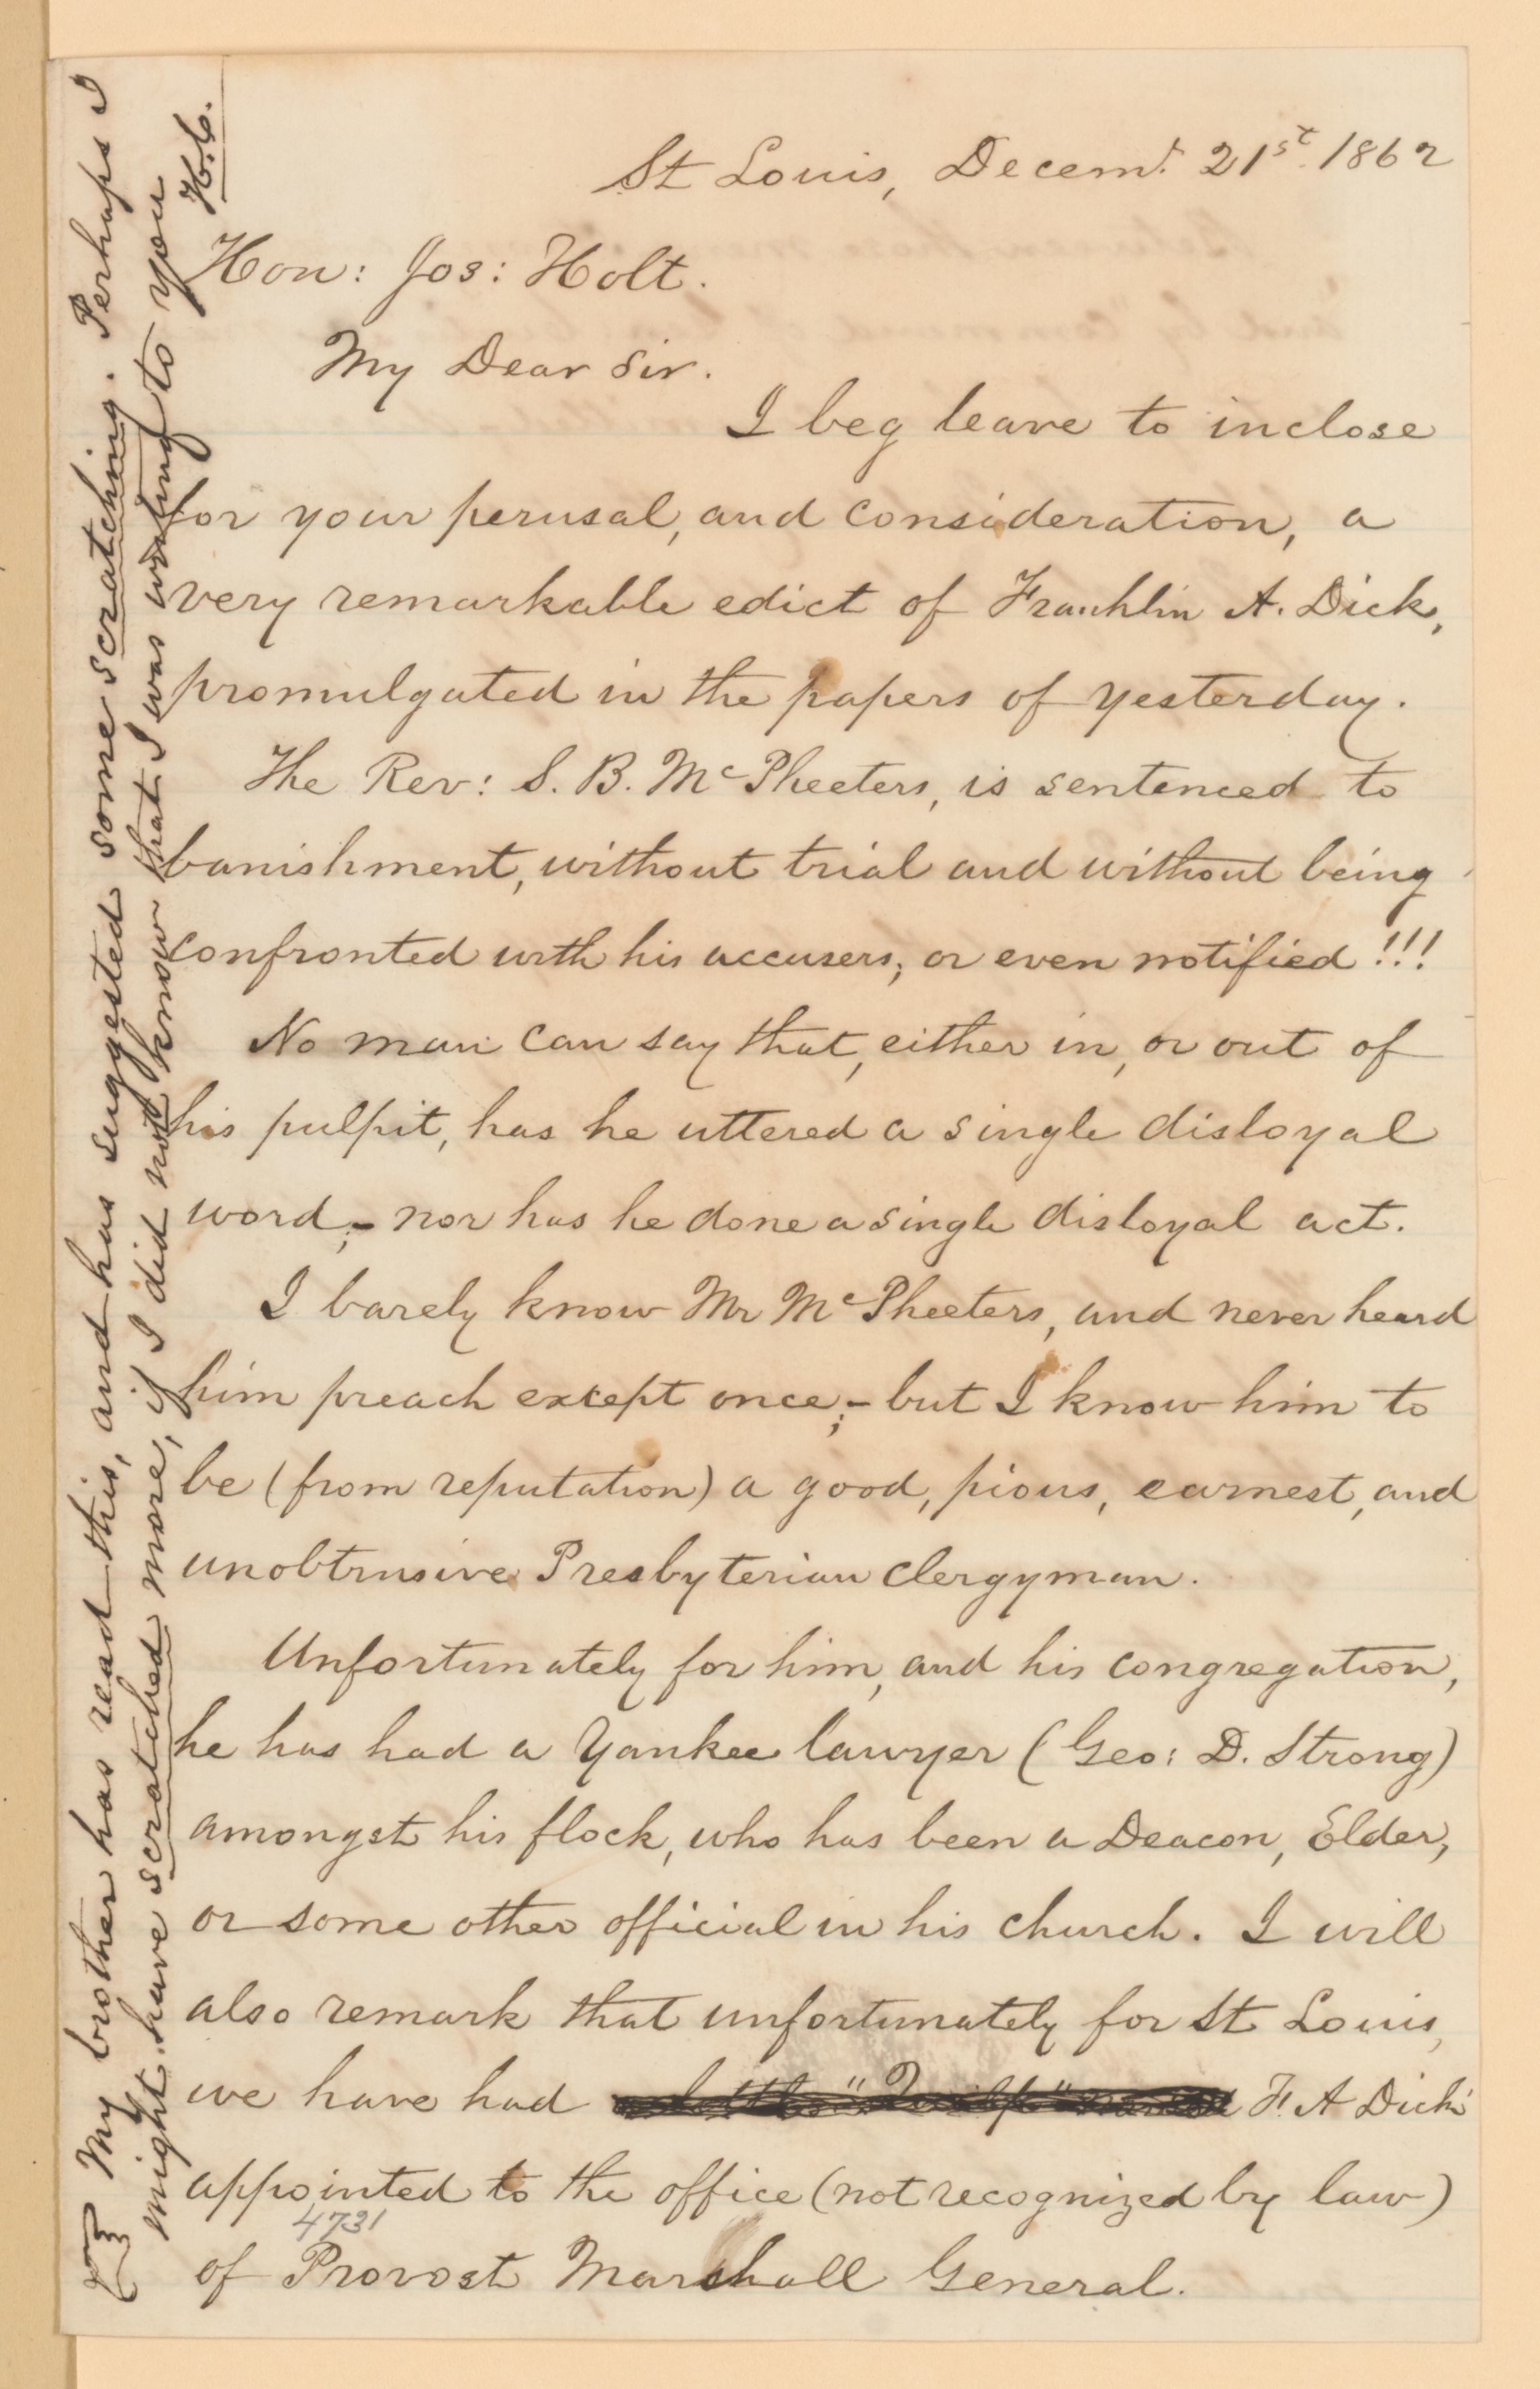 St Louis, Decemr. 21st. 1862
Hon: Jos: Holt.
My Dear Sir.
I beg leave to inclose
for your perusal, and consideration, a
very remarkable edict of Franklin A. Dick,
promulgated in the papers of yesterday.
The Rev: S. B. McPheeters, is sentenced to
banishment, without trial and without being
confronted with his accusers, or even notified!!!
No man can say that, either in, or out of
his pulpit, has he uttered a single disloyal
word;- nor has he done a single disloyal act.
I barely know Mr McPheeters, and never heard
him preach except once;- but I know him to
be (from reputation) a good, pious, earnest, and
unobtrusive Presbyterian clergyman.
Unfortunately for him, and his congregation,
he has had a Yankee lawyer (Geo: D. Strong)
amongst his flock, who has been a Deacon, Elder,
or some other official in his church. I will
also remark that unfortunately for St Louis,
we have had F. A Dick
appointed to the office (not recognized by law)
4731
of Provost Marshall General.
My brother has read this, and has suggested some scratching. Perhaps I
might have scratched more, if I did not know that I was writing to you
H.C.